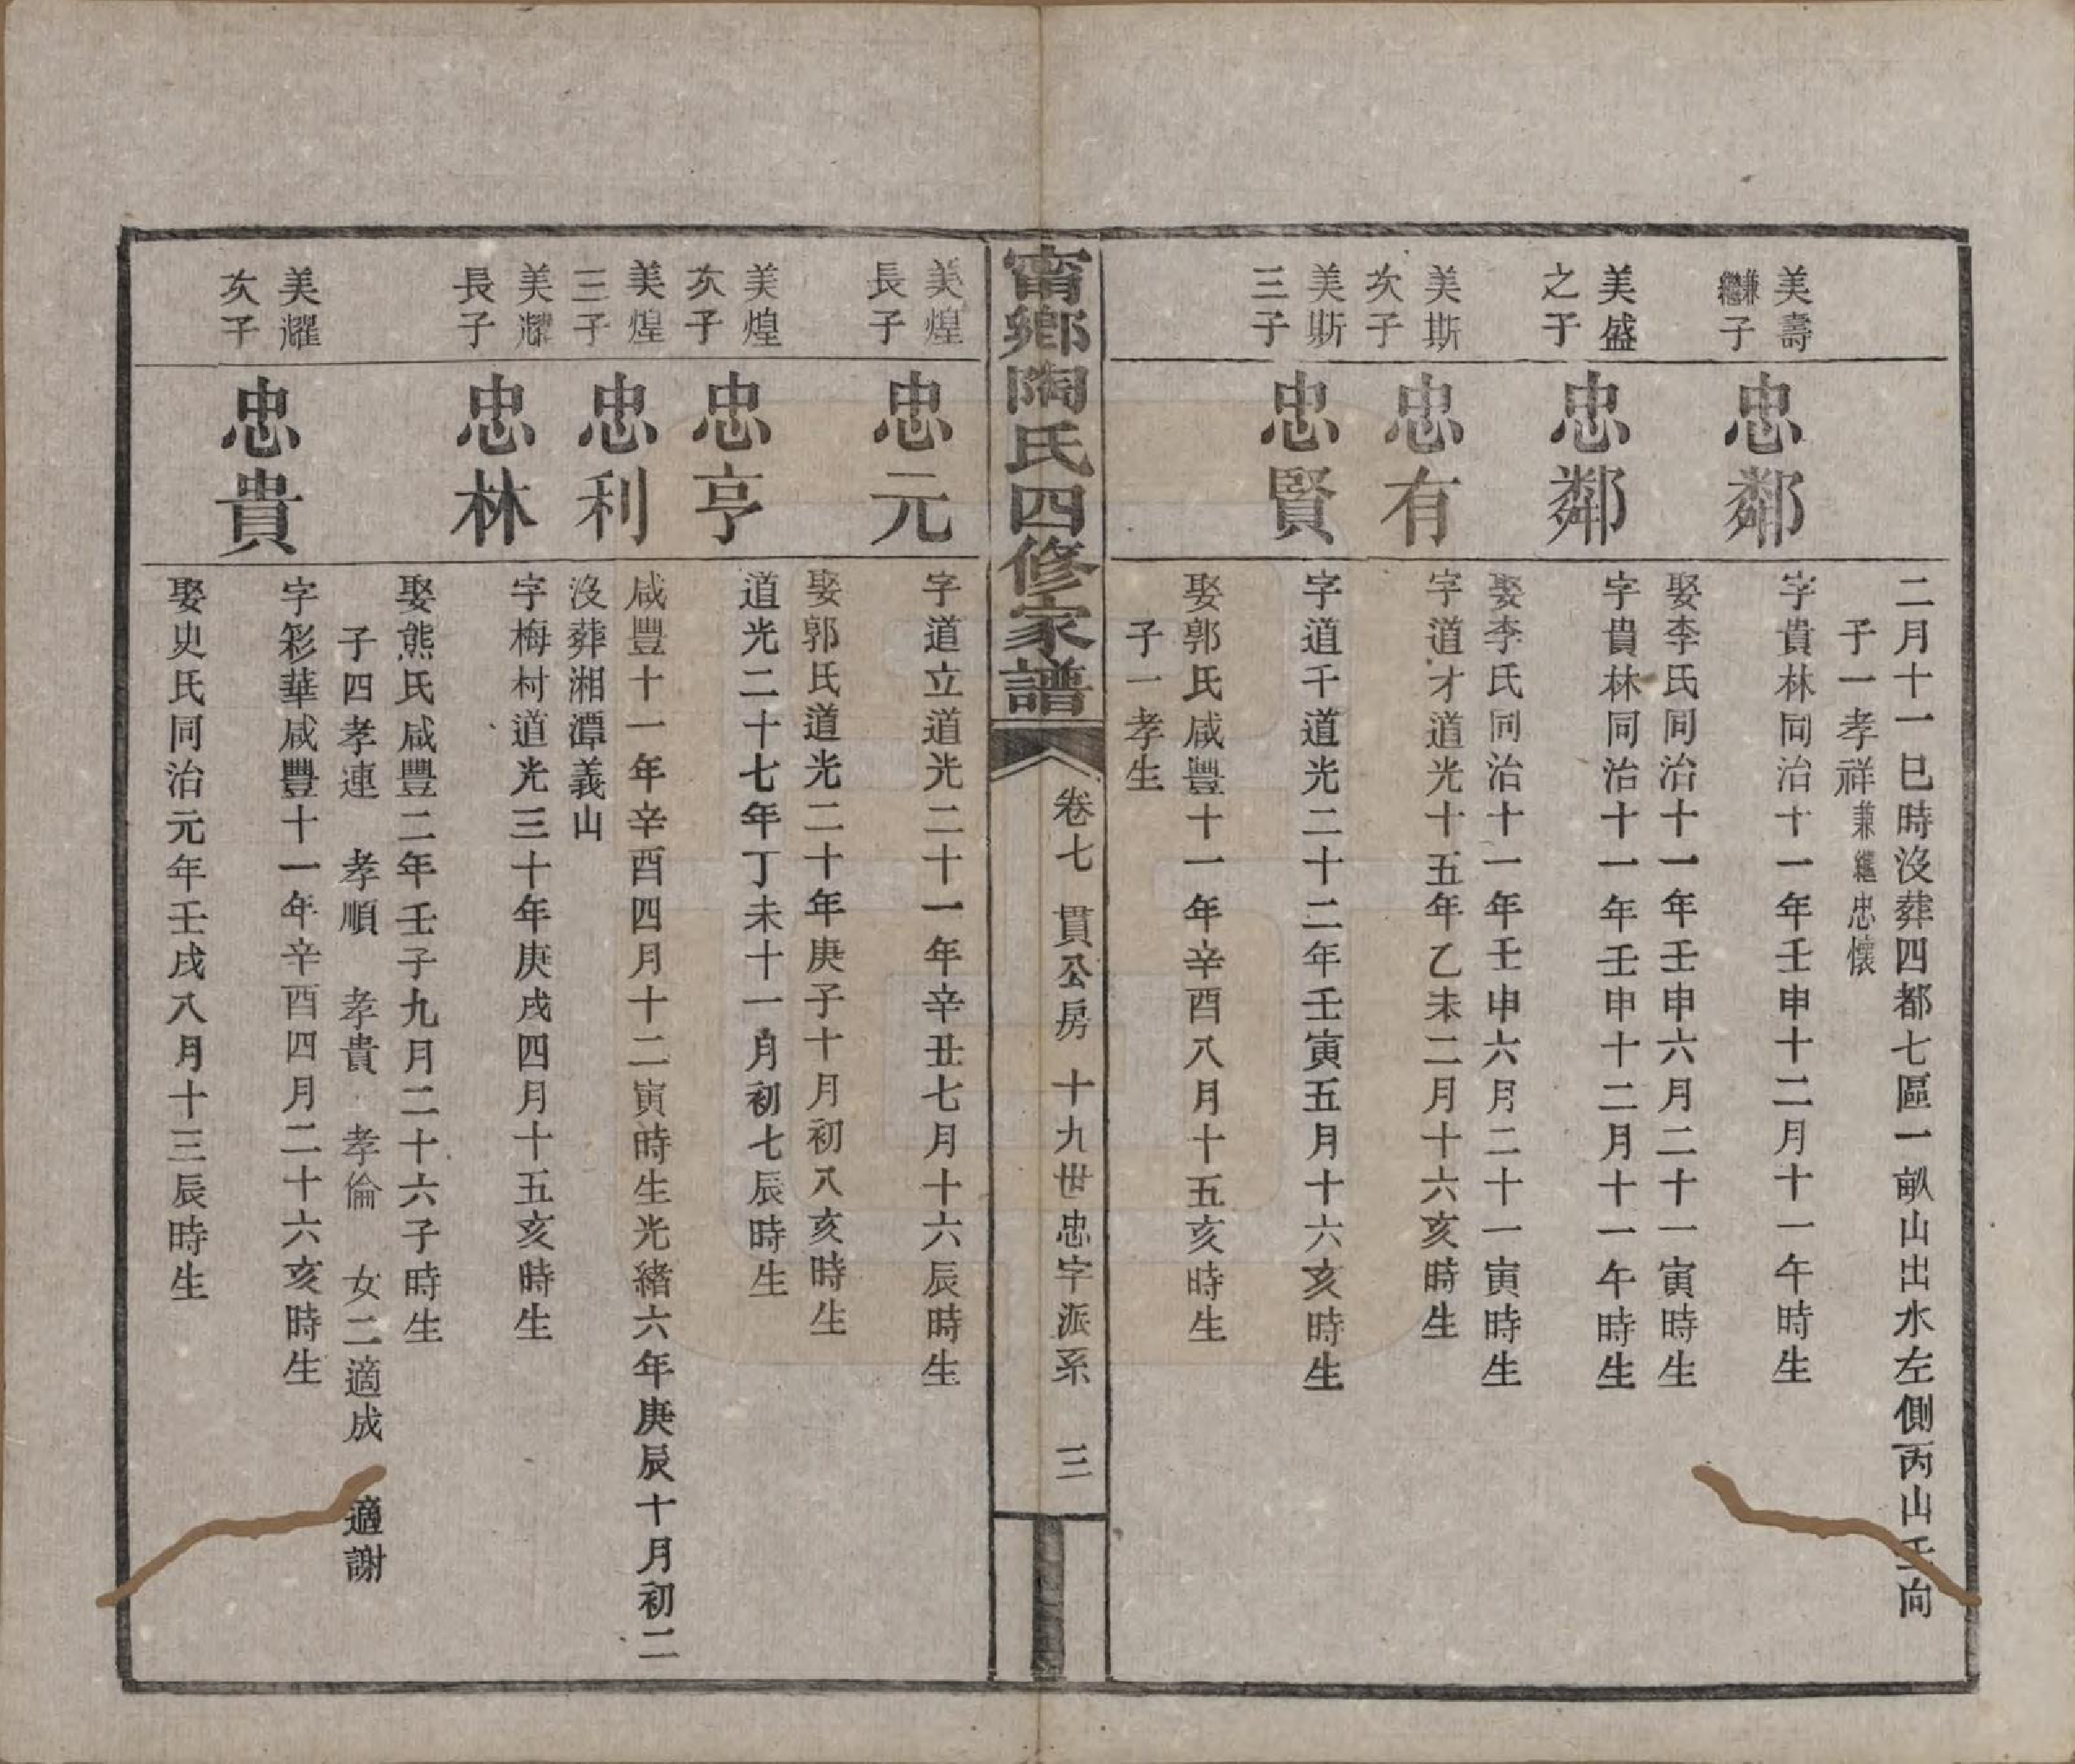 二月十一巳時沒葬四都七區一畝山出水左側丙山壬向
子一孝祥兼繼忠懷
美壽兼繼子
忠鄰
字貴林同治十一年壬申十二月十一午時生
娶李氏同治十一年壬申六月二十一寅時生
美盛之子
忠鄰
字貴林同治十一年壬申十二月十一午時生
娶李氏同治十一年壬申六月二十一寅時生
美斯次子
忠有
字道才道光十五年乙未二月十六亥時生
美斯三子
忠賢
字道千道光二十二年壬寅五月十六亥時生
娶郭氏咸豐十一年辛酉八月十五亥時生
子一孝生
甯鄉陶氏四修家譜
卷七 貫公房 十九世忠字派系 三
美煌長子
忠元
字道立道光二十一年辛丑七月十六辰時生
娶郭氏道光二十年庚子十月初八亥時生
美煌次子
忠亨
道光二十七年丁未十一月初七辰時生
美煌三子
忠利
咸豐十一年辛酉四月十二寅時生光緒六年庚辰十月初二
沒葬湘潭義山
美耀長子
忠林
字梅村道光三十年庚戌四月十五亥時生
娶熊氏咸豐二年壬子九月二十六子時生
子四孝連 孝順 孝貴 孝倫 女二適成 適謝
美耀次子
忠貴
字彩華咸豐十一年辛酉四月二十六亥時生
娶史氏同治元年壬戌八月十三辰時生